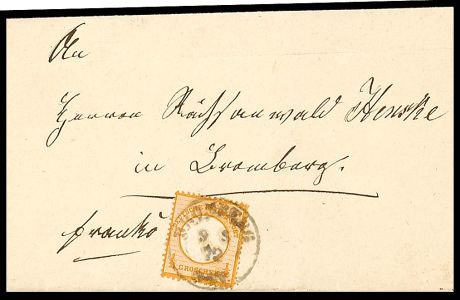 An
Herrn Rechtsanwald Henske
in Bromberg.
franko
GROSCHEN